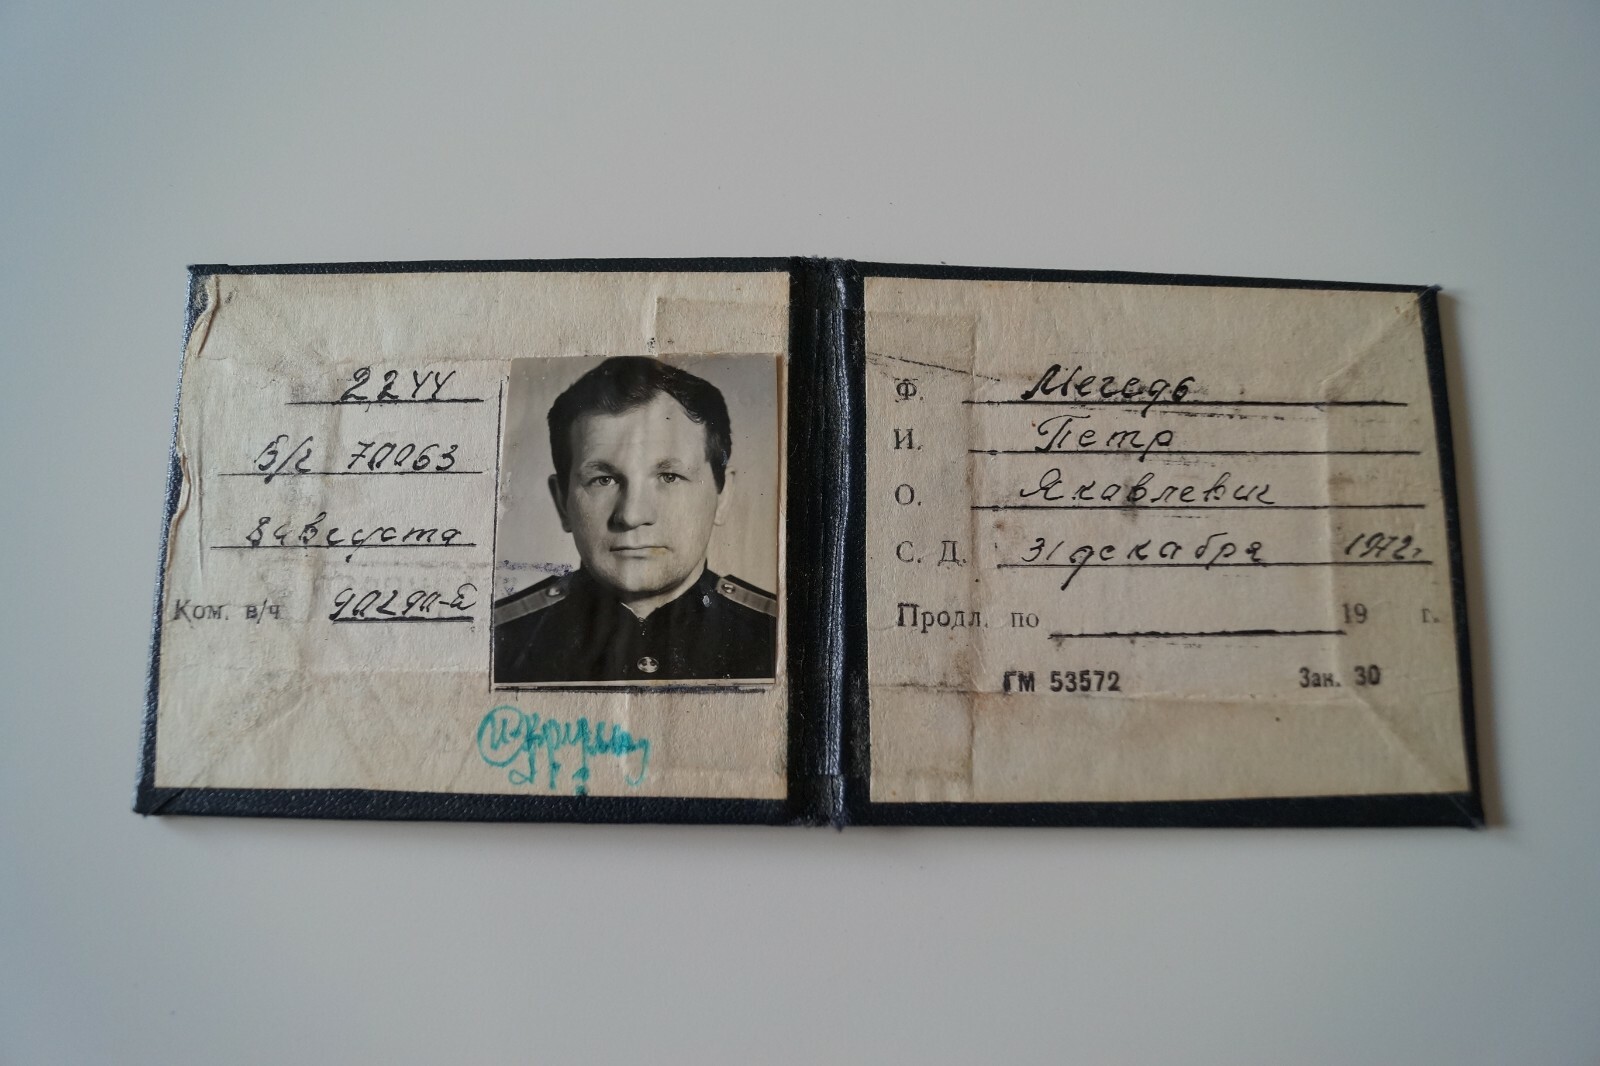 2244
70063
8 августа
Ком. в/ч
Ф. Мегедь
И. Петр
О. Яковлевич
С. Д. 31 декабря 1972г.
Продл. по 19 г.
ГМ 53572 Зак. 30